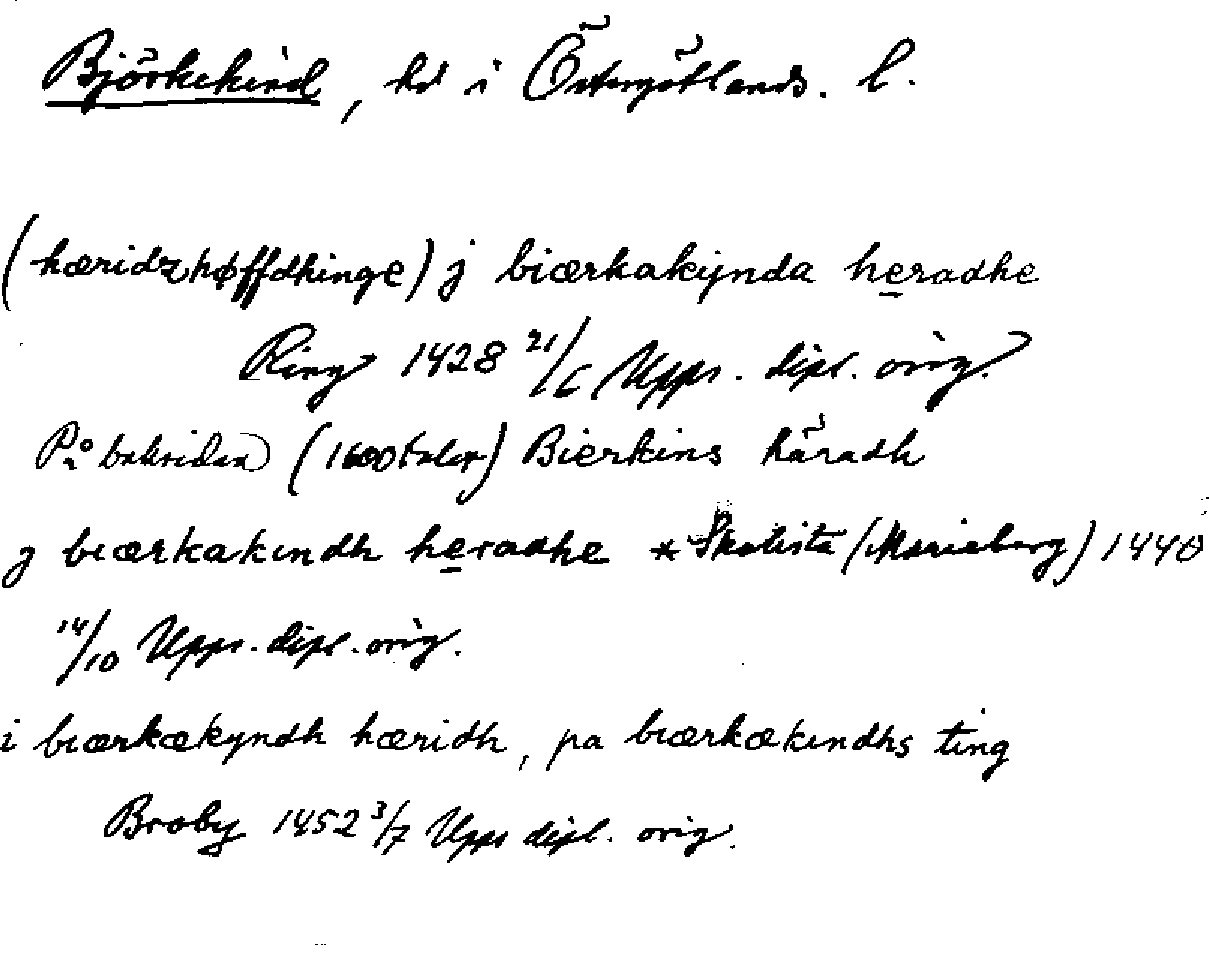 Björkekind, hd i Östergötlands. l.
(hæridzhøffdhinge) j biærkakynda heradhe
Ring 1428 21/6 Upps. dipl. orig.
På baksidan (1600talet) Bierkins häradh
j biærkakindh heradhe * Skalista (Marieberg) 1440
14/10 Upps. dipl. orig.
i biærkækyndh hæridh, pa biærkækindhs ting
Broby 1452 3/7 Upps dipl. orig.